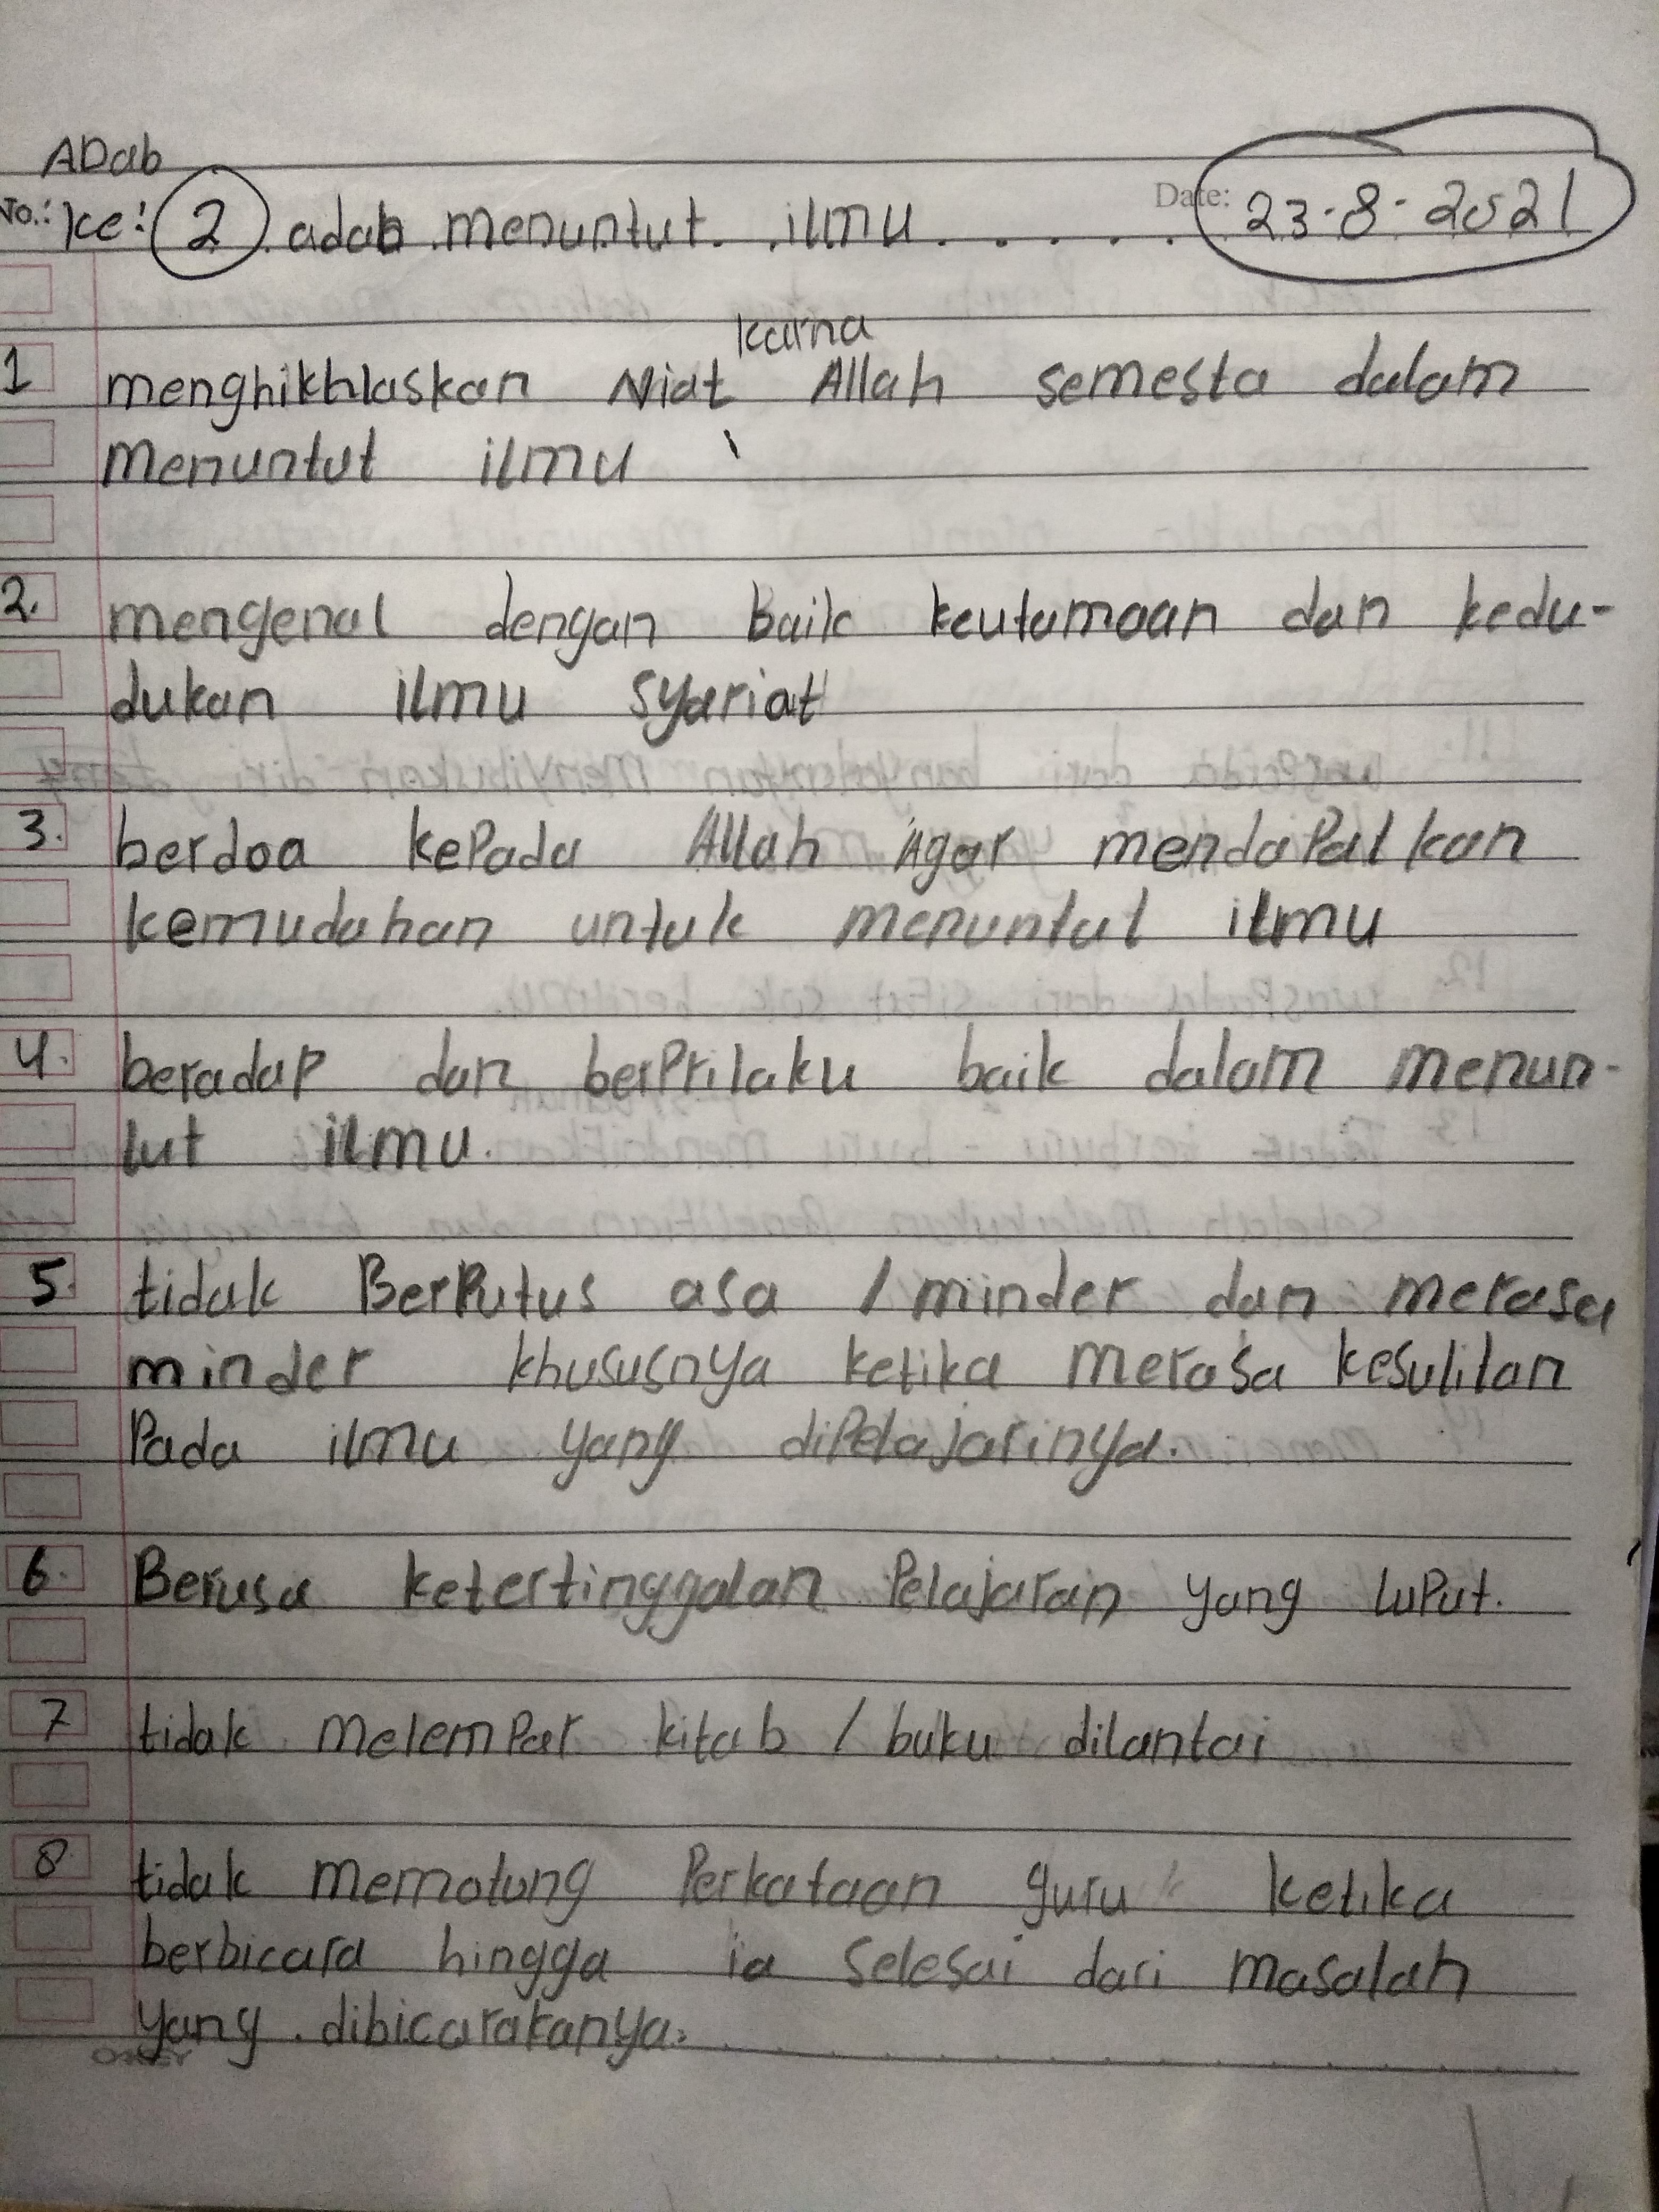 ADab
No.: Ke: 2 adab menuntut ilmu Date: 23-8-2021
karna
1 menghikhlaskan Niat Allah semesta dalam
menuntut ilmu
2. mengenal dengan baik keutamaan dan kedu-
dukan ilmu syariat
3. berdoa kepada Allah Agar mendapatkan
kemudahan untuk menuntut ilmu
4. beradap dan berprilaku baik dalam menun-
tut ilmu.
5. tidak Berputus asa / minder dan merasa
minder khususnya ketika merasa kesulitan
Pada ilmu yang dipelajarinya.
6. Berusa ketertinggalan Pelajaran yang luput.
7 tidak melempar kitab / buku dilantai
8 tidak memotong Perkataan guru ketika
berbicara hingga ia selesai dari masalah
yang dibicarakanya.